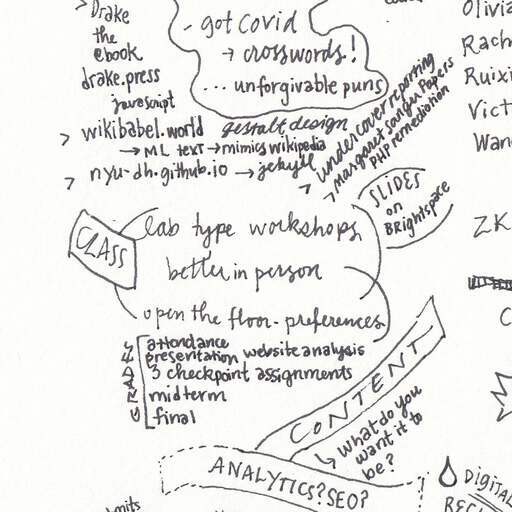 > Drake
the
ebook
drake.press
javascript
- got covid
→ crosswords!
... unforgivable puns
> wikibabel.world
gestalt design
→ ML text → mimics wikipedia
> nyu-dh.github.io → jekyll
> undercover reporting
> Margaret Sanger Papers
PHP remediation
SLIDES
on
BRightspace
CLASS
lab type workshops
better in person
open the floor - preferences
GRADES
attendance
presentation website analysis
3 checkpoint assignments
midterm
final
CONTENT
↳ what do you
want it to
be?
ANALYTICS? SEO?
Olivia
Rach
Ruixi
Vict
Wan
ZK
C
DIGITAL
RECL